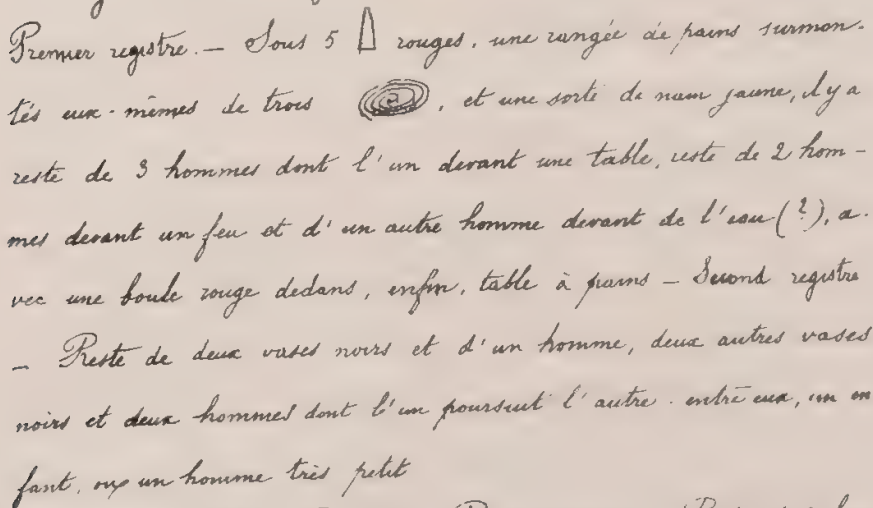 Premier registre. — Sous 5 rouges, une rangée de pains surmon-
tés eux-mêmes de trois , et une sorte de nam jaune, il y a
reste de 3 hommes dont l'un devant une table, reste de 2 hom-
mes devant un feu et d'un autre homme devant de l'eau (?), a-
vec une boule rouge dedans, enfin, table à pains — Second registre
— Reste de deux vases noirs et d'un homme, deux autres vases
noirs et deux hommes dont l'un poursuit l'autre. entre eux, un en
fant, ou un homme très petit